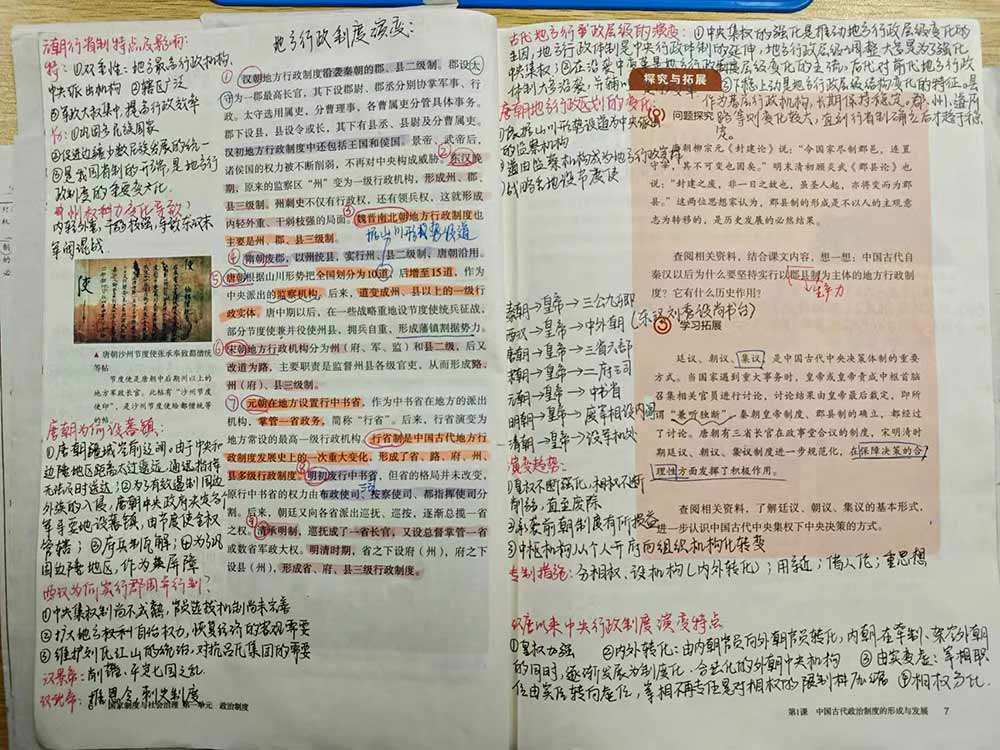 元朝行省制特点及影响:
特:①双重性:地方最高行政机构,
中央派出机构 ②辖区广泛
③军政大权集中,提高行政效率
①巩固多民族国家
②促进边疆少数民族发展的统一
③是我国省制的开端,是地方行
政制度的重要变化.
州权利变化导致?
内轻外重,干弱枝强,导致东汉末
年间混战.
▲ 唐朝沙州节度使张承奉致都僧统
等帖
节度使是唐朝中后期州以上的
地方军政长官。此帖有“沙州节度
使印”,是沙州节度使给都僧统等
的帖。
唐朝为何设藩镇:
①唐朝疆域空前辽阔.由于中央和
边陲地区距离太过遥远,通讯指挥
无法及时送达;②为了有效遏制周边
外族的入侵,唐朝中央政府央定多
年于要地设藩镇,由节度使全权
管辖;③府兵制瓦解;④为巩
固边陲地区,作为藩屏障
西汉为何实行郡国并行制?
①中央集权制尚不成熟,官员选拔机制尚未完善
②扩大地方权利自治权力,恢复经济的客观需要
③维护刘氏江山的统治,对抗吕氏集团的需要
汉景帝:削藩,平定七国之乱
汉武帝:推恩令,刺史制度
国家制度与社会治理 第一单元 政治制度
地方行政制度演变:
① 汉朝地方行政制度沿袭秦朝的郡、县二级制。郡设太
守为一郡最高长官,其下设郡尉、郡丞分别协掌军事、行
政。太守选用属吏,分曹理事,各曹属吏分管具体事务。
郡下设县,县设令或长,其下有县丞、县尉及分曹属吏。
汉初地方行政制度中还包括王国和侯国。景帝、武帝后,
诸侯国的权力被不断削弱,不再对中央构成威胁。② 东汉晚
期,原来的监察区“州”变为一级行政机构,形成州、郡、
县三级制。州刺史不仅有行政权,还有领兵权,这就形成
内轻外重、干弱枝强的局面。③ 魏晋南北朝地方行政制度也
主要是州、郡、县三级制。
按山川形势设道
④ 隋朝废郡,以州统县,实行州、县二级制,唐朝沿用。
⑤ 唐朝根据山川形势把全国划分为10道,后增至15道,作为
中央派出的监察机构,后来,道变成州、县以上的一级行
政实体。唐中期以后,在一些战略重地设节度使统兵征战,
部分节度使兼并役使州县,拥兵自重,形成藩镇割据势力。
⑥ 宋朝地方行政机构分为州(府、军、监)和县二级,后又
改道为路,主要职责是监督州县各级官吏,从而形成路、
州(府)、县三级制。
⑦ 元朝在地方设置行中书省,作为中书省在地方的派出
机构,掌管一省政务,简称“行省”。后来,行省演变为
地方常设的最高一级行政机构。行省制是中国古代地方行
政制度发展史上的一次重大变化,形成了省、路、府、州、
县多级行政制度。⑧ 明初废行中书省,但省的格局并未改变,
原行中书省的权力由布政使司、按察使司、都指挥使司分
割。后来,朝廷又向各省派出巡抚、巡按,逐渐总揽一省
之权。⑨ 清承明制,巡抚成了一省长官,又设总督掌管一省
或数省军政大权。明清时期,省之下设府(州),府之下
设县(州),形成省、府、县三级行政制度。
古代地方行政层级的演变:①中央集权的强化是推动地方行政层级变化的
主因,地方行政体制是中央行政体制的延伸,地方行政层级的调整大总是为了强化
中央集权;②在设架中变革是地方行政制度层级变化的主流,后代对前代地方行政
体制大多沿袭,并辅 ③下抠上动是地方行政层级结构变化的特征.县
作为基层行政机构,长期保持稳定,郡、州、道府
路等则变化较大,直到行省制确立后才趋于稳
定。
唐朝地方行政区划的变化:
①依据山川形势设道为中央派出
的监察机构
②道由监察机构成为地方行政实体
③战略要地设节度使
探究与拓展
问题探究
唐朝柳宗元《封建论》说:“今国家尽制郡邑,连置
守宰,其不可变也固矣。”明末清初顾炎武《郡县论》也
说:“封建之废,非一日之故也,虽圣人起,亦将变而为郡
县。”这两位思想家认为,郡县制的形成是不以人的主观意
志为转移的,是历史发展的必然结果。
查阅相关资料,结合课文内容,想一想:中国古代自
秦汉以后为什么要坚持实行以郡县制为主体的地方行政制
度?它有什么历史作用?
生产力
秦朝→皇帝→三公九卿
西汉→皇帝→中外朝(东汉刘秀设尚书台)
唐朝→皇帝→三省六部
宋朝→皇帝→二府三司
元朝→皇帝→中书省
明朝→皇帝→废宰相设内阁
清朝→皇帝→设军机处
学习拓展
廷议、朝议、集议,是中国古代中央决策体制的重要
方式。当国家遇到重大事务时,皇帝或皇帝责成中枢首脑
召集相关官员进行讨论,讨论结果由皇帝最后裁定,即所
谓“兼听独断”。秦朝皇帝制度、郡县制的确立,都经过
了讨论。唐朝有三省长官在政事堂合议的制度,宋明清时
期廷议、朝议、集议制度进一步规范化,在保障决策的合
理性方面发挥了积极作用。
查阅相关资料,了解廷议、朝议、集议的基本形式,
进一步认识中国古代中央集权下中央决策的方式。
演变趋势:
①皇权不断强化,相权不断
削弱,直至废除
②承袭前朝制度有所损益
③中枢机构从个人开府向组织机构化转变
专制措施:分相权、设机构(内外转化);用亲近;信人伦;重思想
汉唐以来中央行政制度演变特点
①皇权加强 ②内外转化:由内朝官员向外朝官员转化,内朝在牵制、架空外朝
的同时,逐渐发展为制度化、合法化的外朝中央机构 ③由实变虚:宰相职
位由实位转向虚位,宰相不专任是对相权的限制和压缩 ④相权分化.
第1课 中国古代政治制度的形成与发展 7